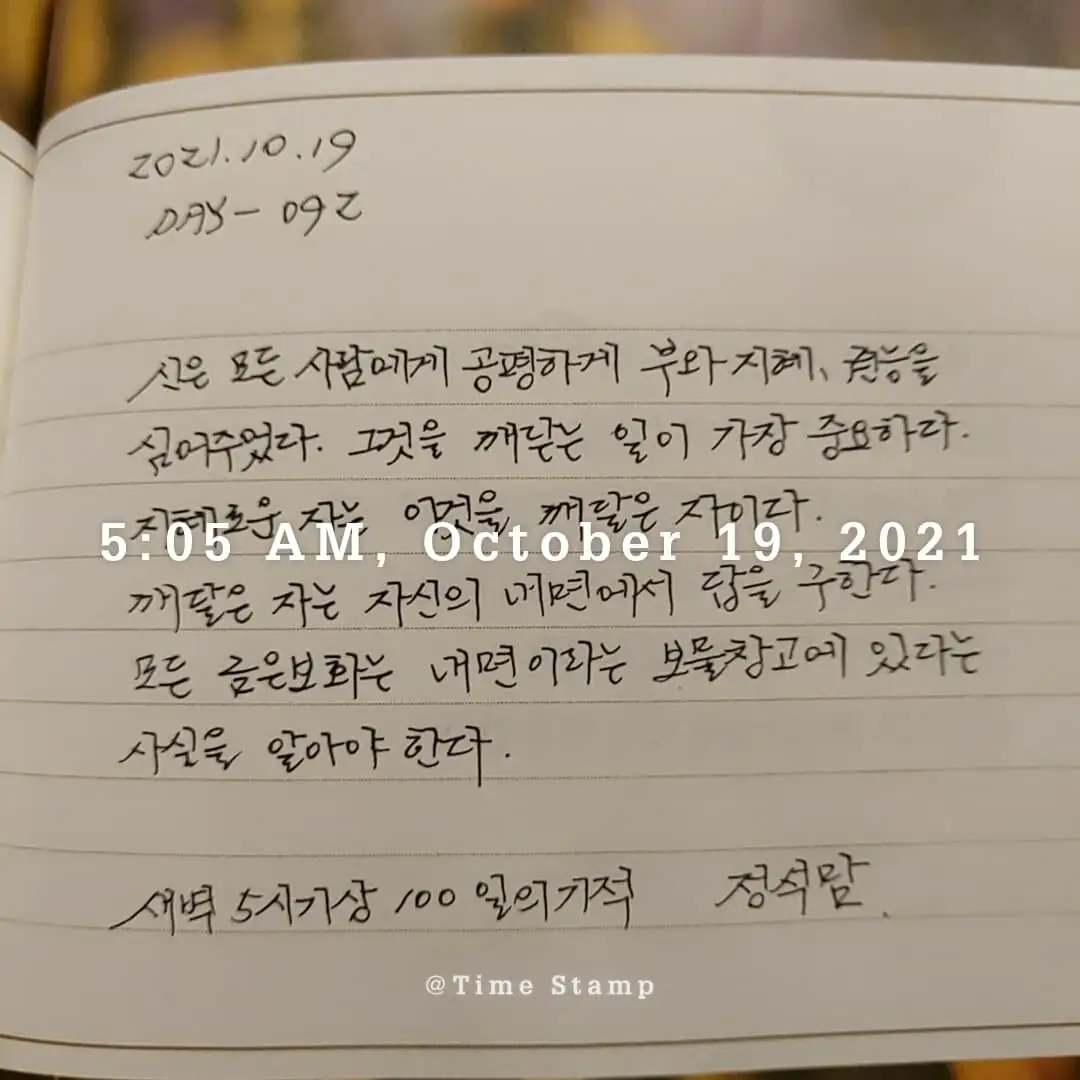 2021.10.19
DAY - 092
신은 모든 사람에게 공평하게 부와 지혜, 권능을
심어주었다. 그것을 깨닫는 일이 가장 중요하다.
지혜로운 자는 이것을 깨달은 자이다.
5:05 AM, October 19, 2021
깨달은 자는 자신의 내면에서 답을 구한다.
모든 금은보화는 내면이라는 보물창고에 있다는
사실을 알아야 한다.
새벽 5시기상 100일의기적 정석맘.
@Time Stamp